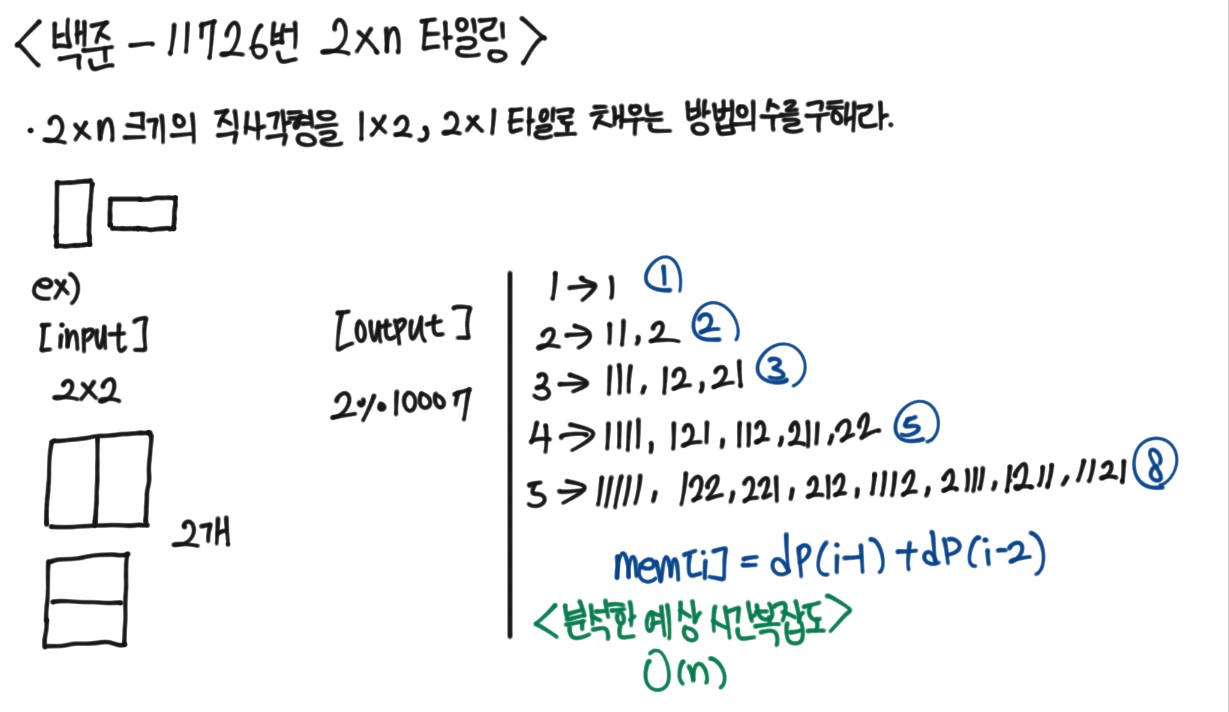 <백준 - 11726번 2×n 타일링>
· 2×n 크기의 직사각형을 1×2, 2×1 타일로 채우는 방법의 수를 구해라.
ex)
[input]
2×2
2개
[output]
2%10007
1→1 ①
2→11, 2 ②
3→111, 12, 21 ③
4→1111, 121, 112, 211, 22 ⑤
5→11111, 122, 221, 212, 1112, 2111, 1211, 1121 ⑧
mem[i] = dP(i-1) + dP(i-2)
<분석한 예상 시간복잡도>
O(n)